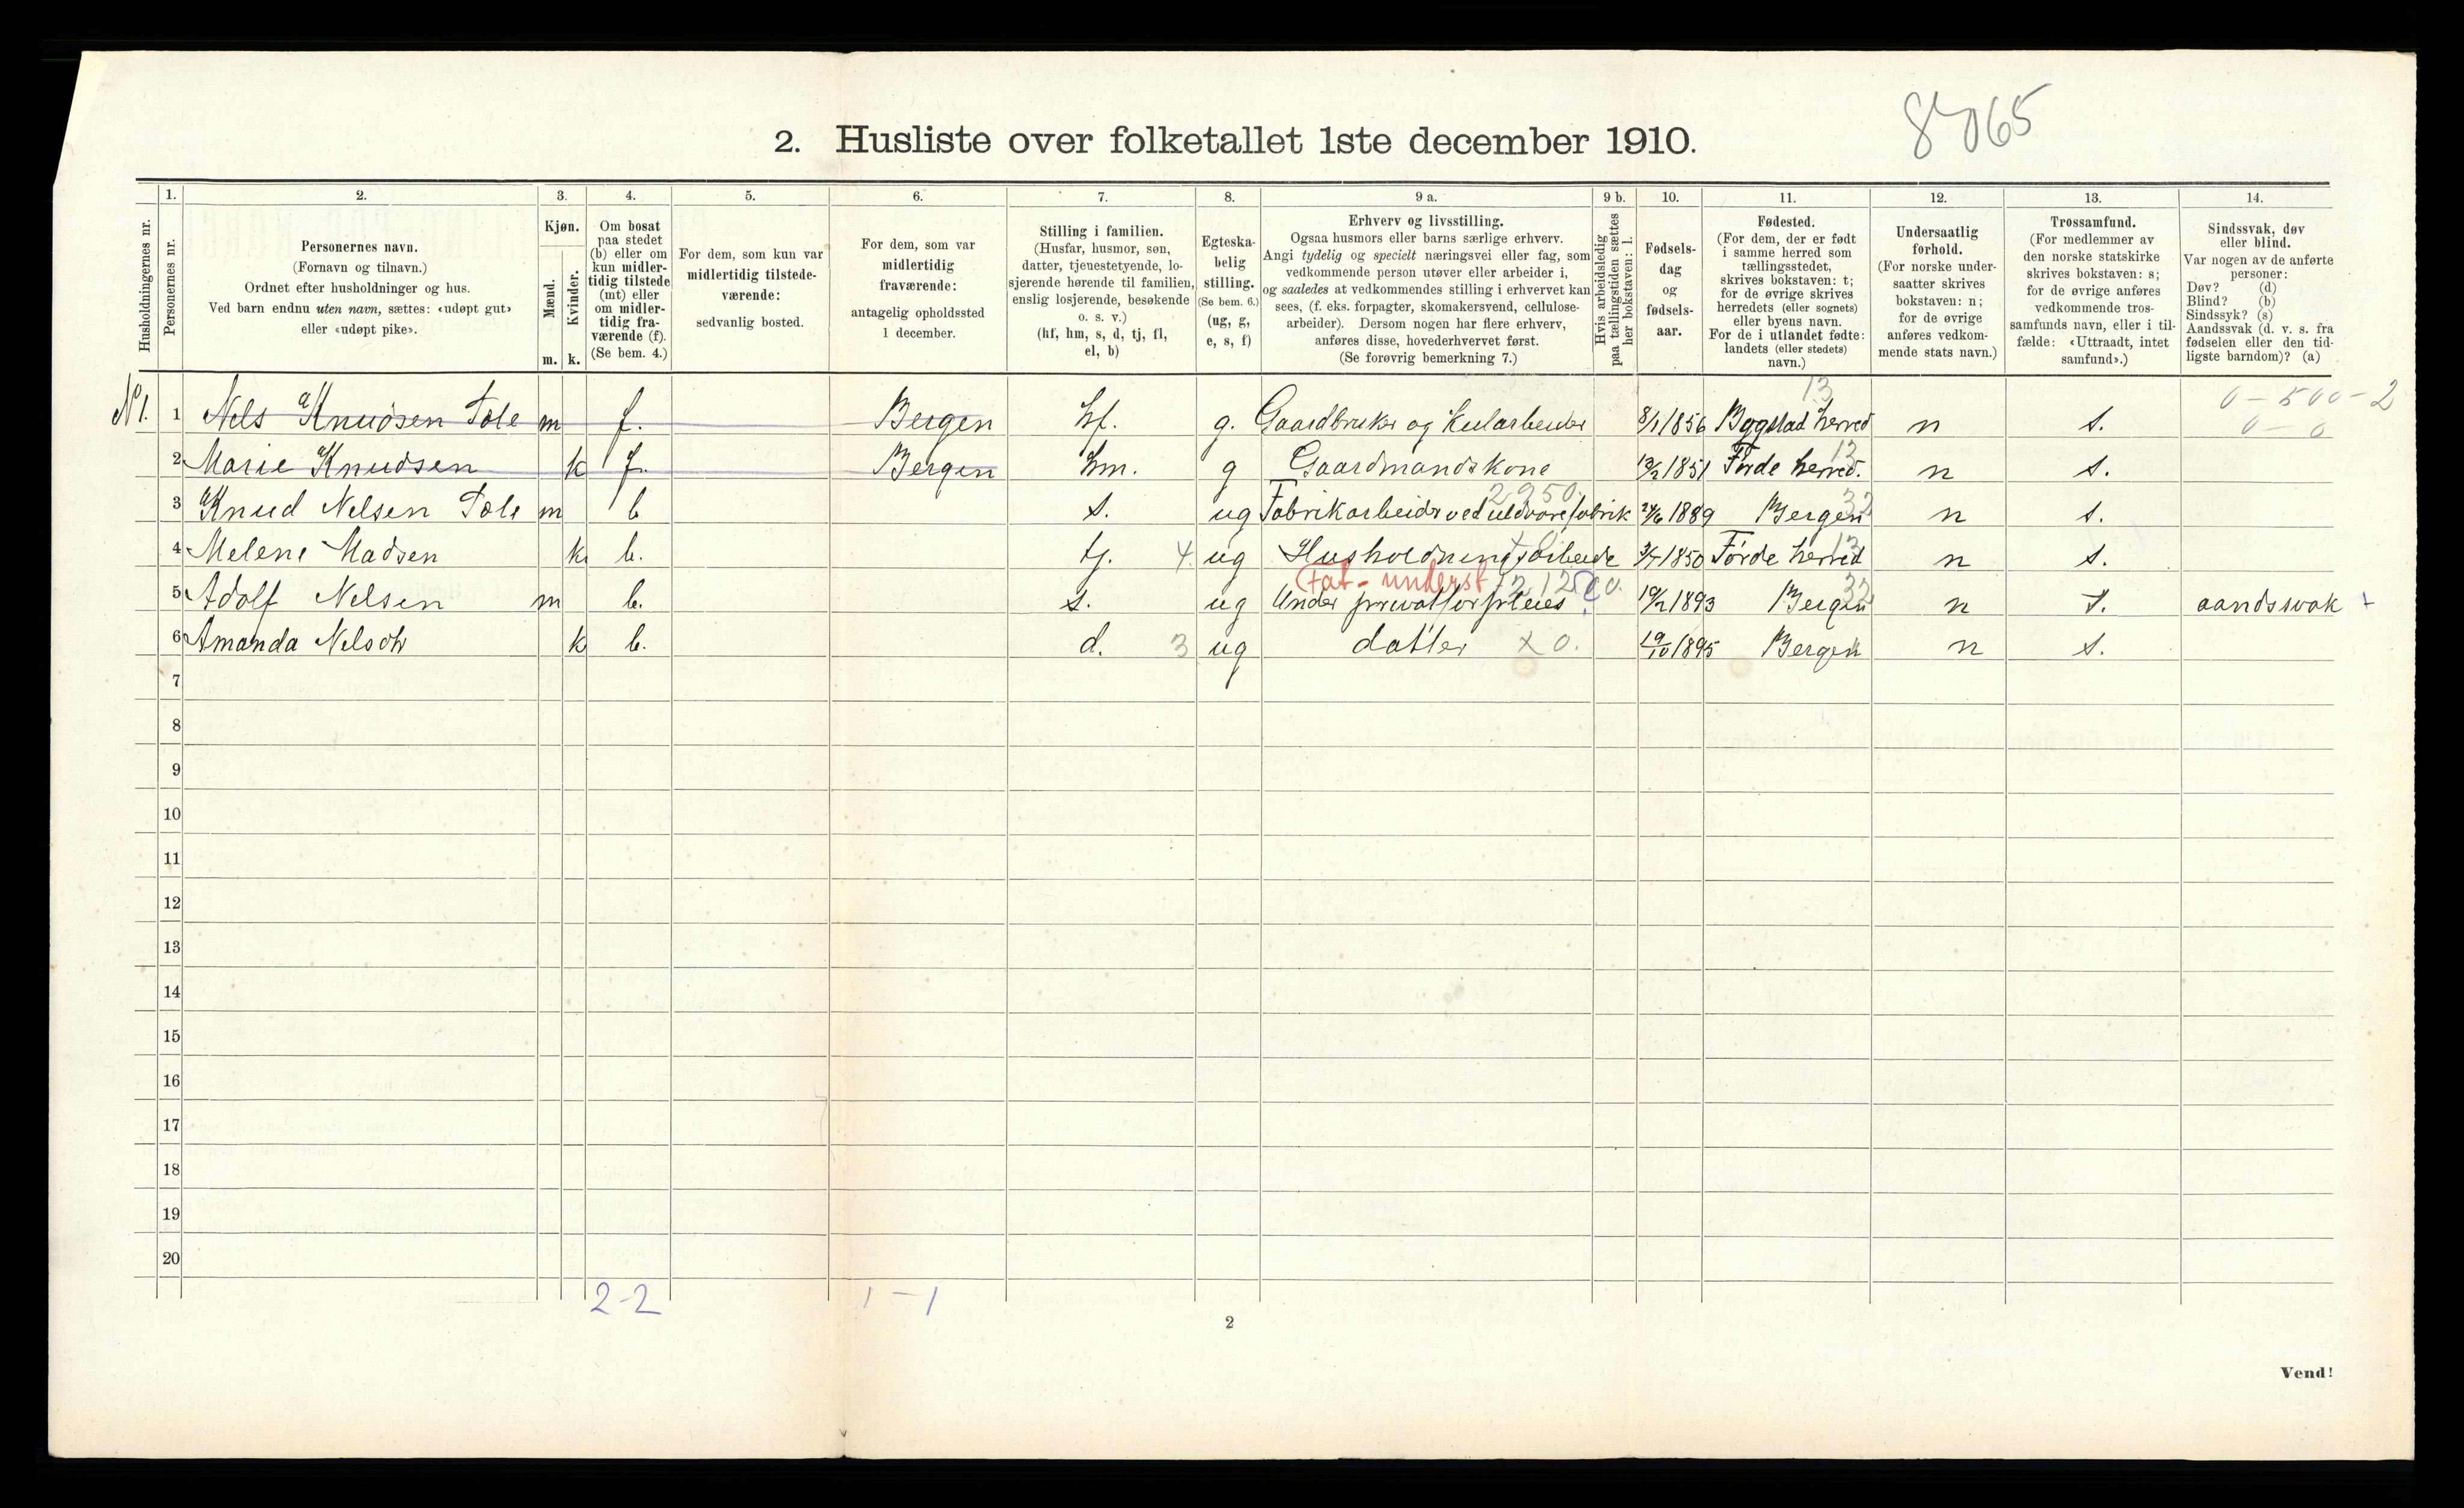 8065
2. Husliste over folketallet 1ste december 1910.
Husholdningernes nr.
1. Personernes nr.
2. Personernes navn. (Fornavn og tilnavn.) Ordnet efter husholdninger og hus. Ved barn endnu uten navn, sættes: «udøpt gut» eller «udøpt pike».
3. Kjøn. Mænd. m. Kvinder. k.
4. Om bosat paa stedet (b) eller om kun midlertidig tilstede (mt) eller om midlertidig fraværende (f). (Se bem. 4.)
5. For dem, som kun var midlertidig tilstedeværende: sedvanlig bosted.
6. For dem, som var midlertidig fraværende: antagelig opholdssted 1 december.
7. Stilling i familien. (Husfar, husmor, søn, datter, tjenestetyende, losjerende hørende til familien, enslig losjerende, besøkende o. s. v.) (hf, hm, s, d, tj, fl, el, b)
8. Egteskabelig stilling. (Se bem. 6.) (ug, g, e, s, f)
9 a. Erhverv og livsstilling. Ogsaa husmors eller barns særlige erhverv. Angi tydelig og specielt næringsvei eller fag, som vedkommende person utøver eller arbeider i, og saaledes at vedkommendes stilling i erhvervet kan sees, (f. eks. forpagter, skomakersvend, cellulosearbeider). Dersom nogen har flere erhverv, anføres disse, hovederhvervet først. (Se forøvrig bemerkning 7.)
9 b. Hvis arbeidsledig paa tællingstiden sættes her bokstaven: l.
10. Fødselsdag og fødselsaar.
11. Fødested. (For dem, der er født i samme herred som tællingsstedet, skrives bokstaven: t; for de øvrige skrives herredets (eller sognets) eller byens navn. For de i utlandet fødte: landets (eller stedets) navn.)
12. Undersaatlig forhold. (For norske undersaatter skrives bokstaven: n; for de øvrige anføres vedkommende stats navn.)
13. Trossamfund. (For medlemmer av den norske statskirke skrives bokstaven: s; for de øvrige anføres vedkommende trossamfunds navn, eller i tilfælde: «Uttraadt, intet samfund».)
14. Sindssvak, døv eller blind. Var nogen av de anførte personer: Døv? (d) Blind? (b) Sindssyk? (s) Aandssvak (d. v. s. fra fødselen eller den tidligste barndom)? (a)
13 0-500-2
No 1. 1 Nels Knudsen Tole m f. Bergen hf. g. Gaardbruker og 8/1 1856 Bygstad herred n s. 0-0
2 Marie Knudsen k f. Bergen hm. g Gaardmandskone 1851 Førde herred. 13 n s.
2950.
3 Knud Nelsen Tole m b s. ug Fabrikarbeider ved uldvarefabrik 1889 Bergen 32 n s.
4 Melene Madsen k b. tj. 4. ug Husholdningsarbeide 1850 Førde herred 13 n s.
Fat-underst.
5 Adolf Nelsen m b. s. ug Under privatforpleies 1893 Bergen 32 n s. aandssvak +
6 Amanda Nelsdtr k b. d. 3 ug datter x 0. 19/10 1895 Bergen n s.
7
8
9
10
11
12
13
14
15
16
17
18
19
20
2-2 1-1
2
Vend!